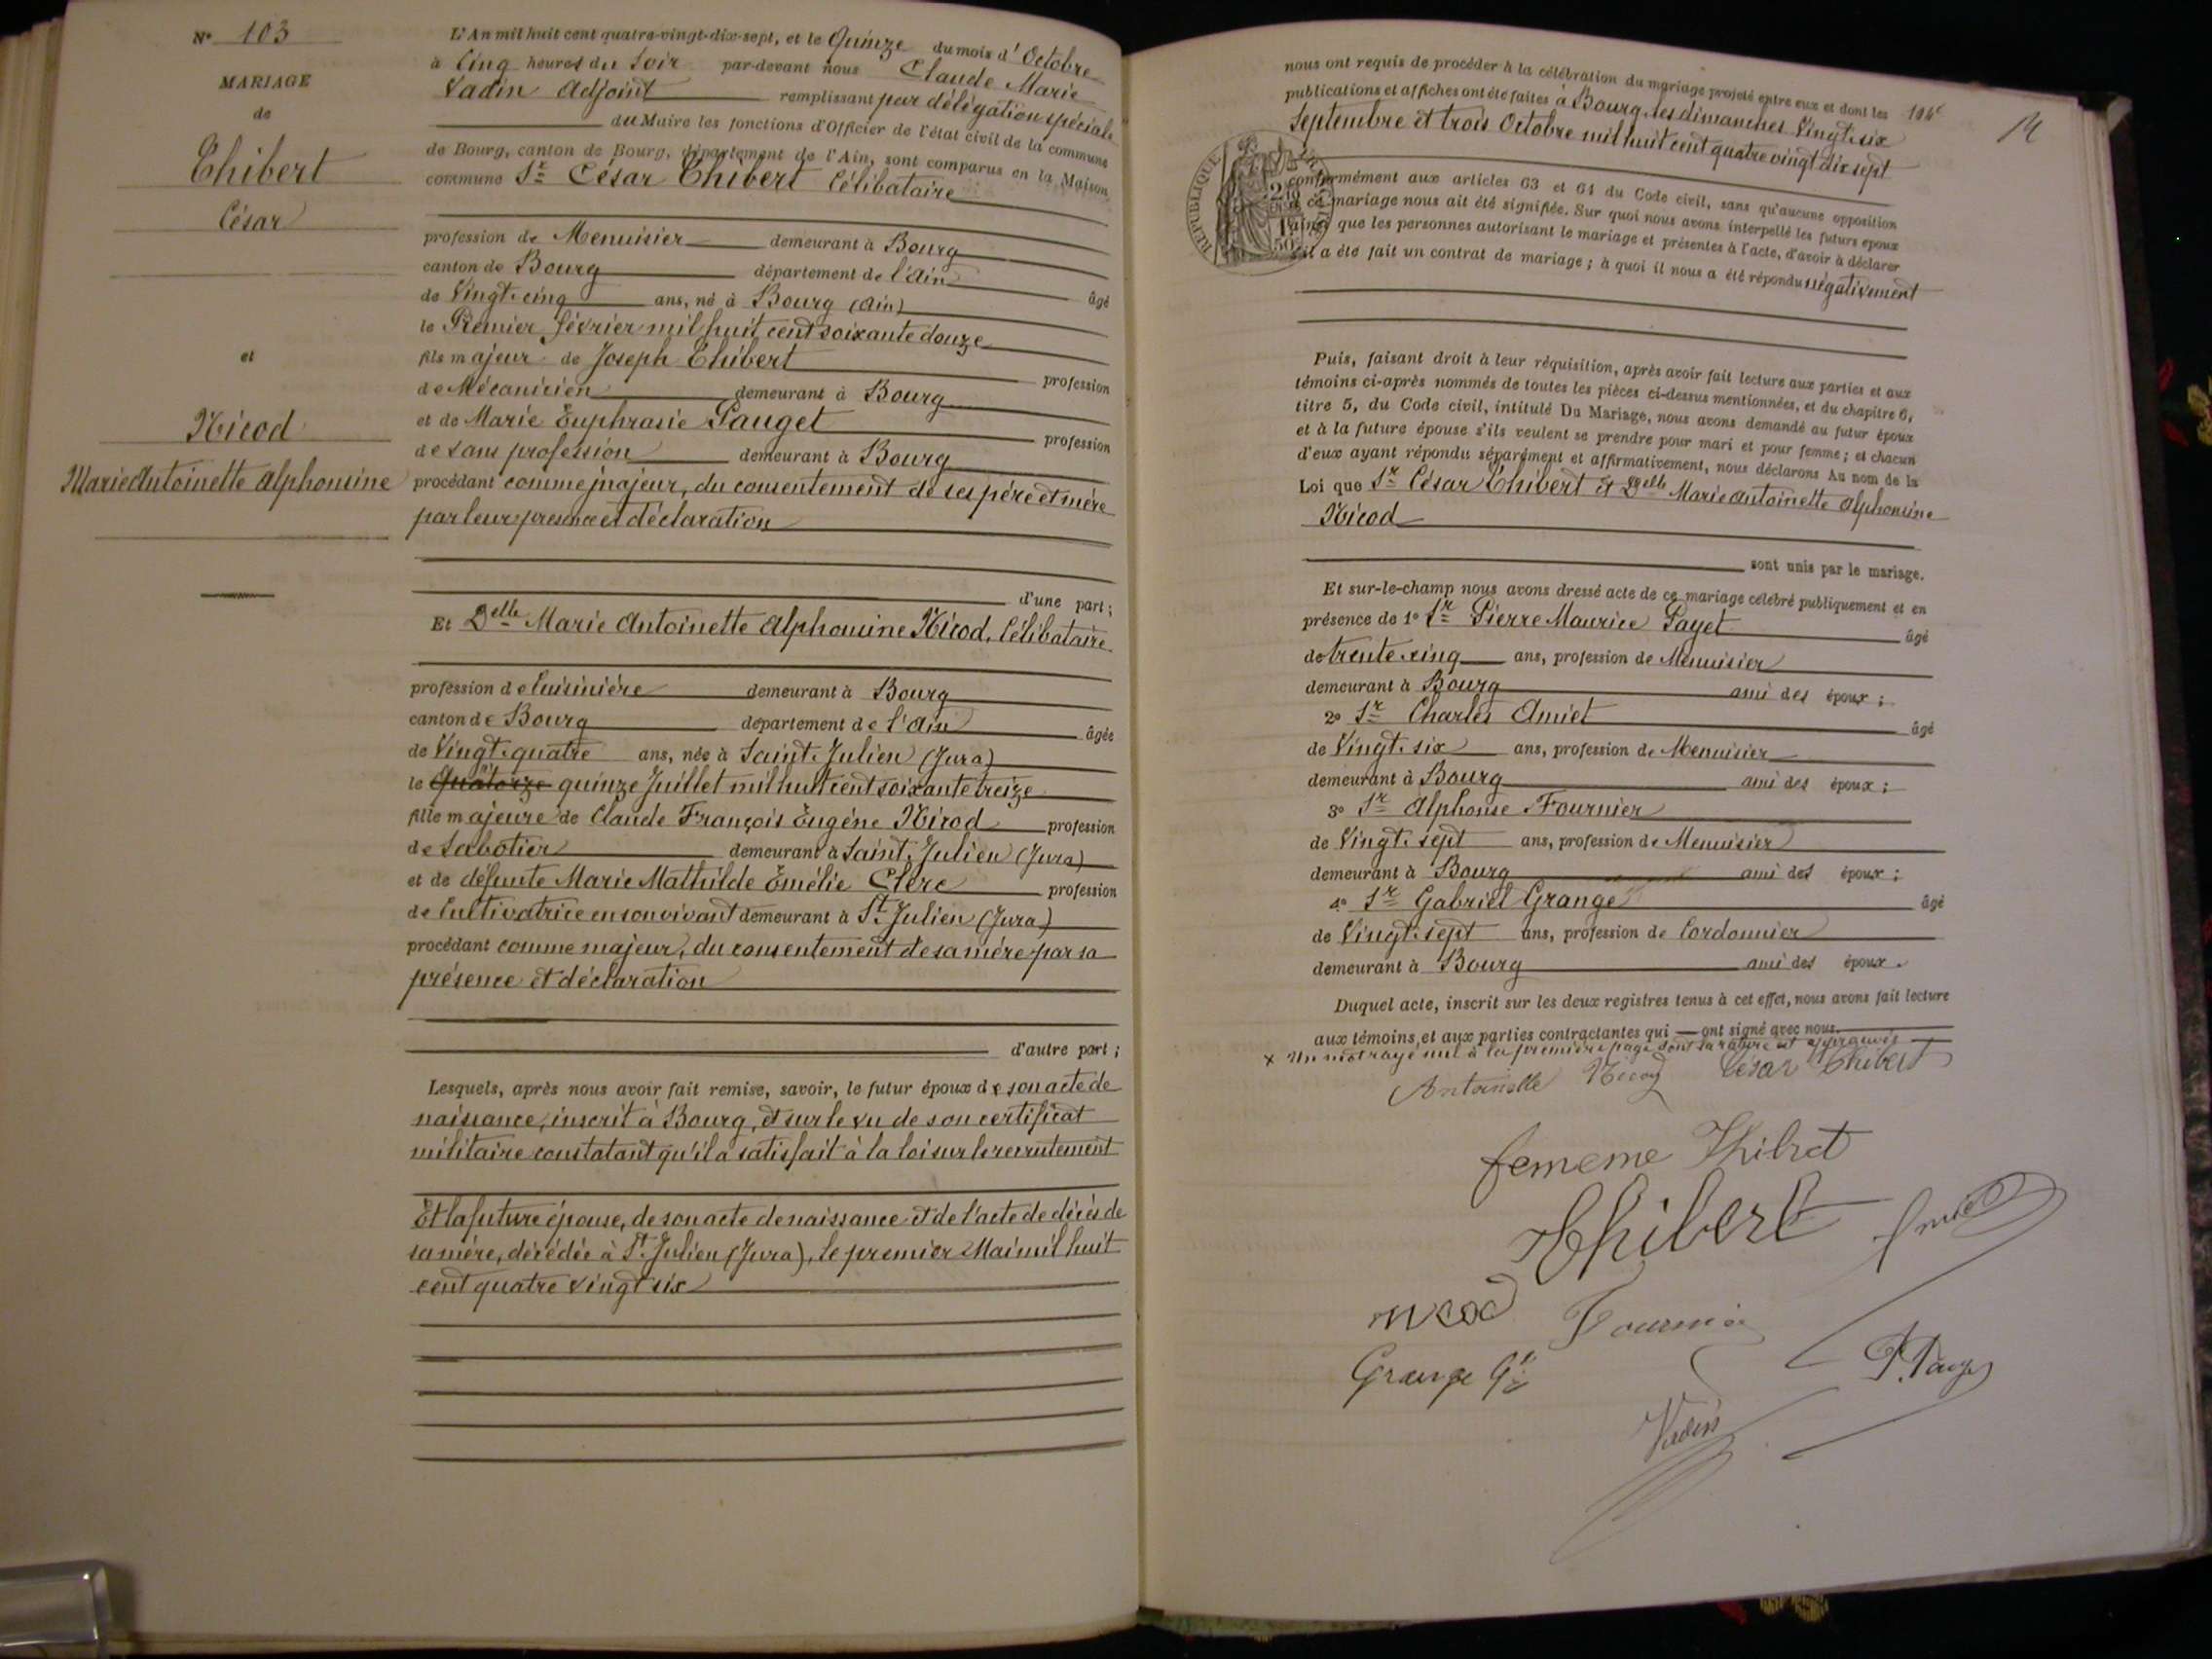 N° 103
MARIAGE
de
Thibert
César
et
Nicod
Marie Antoinette Alphonsine
L'An mil huit cent quatre-vingt-dix-sept, et le Quinze du mois d'Octobre
à Cinq heures du Soir par-devant nous Claude Marie
Vadin Adjoint remplissant par délégation spéciale
du Maire les fonctions d'Officier de l'état civil de la commune
de Bourg, canton de Bourg, département de l'Ain, sont comparus en la Maison
commune Sr César Thibert Célibataire
profession de Menuisier demeurant à Bourg
canton de Bourg département de l'Ain
âgé
de Vingt-cinq ans, né à Bourg (Ain)
le Premier février mil huit cent soixante douze
fils majeur de Joseph Thibert profession
de Mécanicien demeurant à Bourg
et de Marie Euphrasie Pauget profession
de sans profession demeurant à Bourg
procédant comme majeur, du consentement de ses père et mère
par leur présence et déclaration
d'une part;
Et Delle Marie Antoinette Alphonsine Nicod, Célibataire
profession de Cuisinière demeurant à Bourg
canton de Bourg département de l'Ain âgée
de Vingt-quatre ans, née à Saint-Julien (Jura)
le Quatorze quinze Juillet mil huit cent soixante treize
fille majeure de Claude François Eugène Nicod profession
de Sabotier demeurant à Saint-Julien (Jura)
et de défunte Marie Mathilde Emélie Clerc profession
de Cultivatrice en son vivant demeurant à St Julien (Jura)
procédant comme majeur, du consentement de sa mère par sa
présence et déclaration
d'autre part;
Lesquels, après nous avoir fait remise, savoir, le futur époux de son acte de
naissance, inscrit à Bourg, et sur le vu de son certificat
militaire constatant qu'il a satisfait à la loi sur le recrutement
Et la future épouse, de son acte de naissance et de l'acte de décès de
sa mère, décédée à St Julien (Jura), le premier Mai mil huit
cent quatre vingt six
nous ont requis de procéder à la célébration du mariage projeté entre eux et dont les
publications et affiches ont été faites à Bourg, les dimanches Vingt-six
Septembre et trois Octobre mil huit cent quatre vingt dix sept
104e
conformément aux articles 63 et 64 du Code civil, sans qu'aucune opposition
à ce mariage nous ait été signifiée. Sur quoi nous avons interpellé les futurs époux
ainsi que les personnes autorisant le mariage et présentes à l'acte, d'avoir à déclarer
s'il a été fait un contrat de mariage; à quoi il nous a été répondu négativement
RÉPUBLIQUE
Puis, faisant droit à leur réquisition, après avoir fait lecture aux parties et aux
témoins ci-après nommés de toutes les pièces ci-dessus mentionnées, et du chapitre 6,
titre 5, du Code civil, intitulé Du Mariage, nous avons demandé au futur époux
et à la future épouse s'ils veulent se prendre pour mari et pour femme; et chacun
d'eux ayant répondu séparément et affirmativement, nous déclarons Au nom de la
Loi que Sr César Thibert et Delle Marie Antoinette Alphonsine
Nicod
sont unis par le mariage.
Et sur-le-champ nous avons dressé acte de ce mariage célébré publiquement et en
présence de 1° Sr Pierre Maurice Paget âgé
de trente-cinq ans, profession de Menuisier
demeurant à Bourg ami des époux;
2° Sr Charles Amiet âgé
de Vingt-six ans, profession de Menuisier
demeurant à Bourg ami des époux;
3° Sr Alphonse Fournier
de Vingt-sept ans, profession de Menuisier
demeurant à Bourg ami des époux;
4° Sr Gabriel Grange âgé
de Vingt-sept ans, profession de Cordonnier
demeurant à Bourg ami des époux.
Duquel acte, inscrit sur les deux registres tenus à cet effet, nous avons fait lecture
aux témoins et aux parties contractantes qui ont signé avec nous.
x Un mot rayé nul à la première page dont la rature est approuvée
Antoinette Nicod César Thibert
Thibert
nicod Fournier
Grange
Vadin